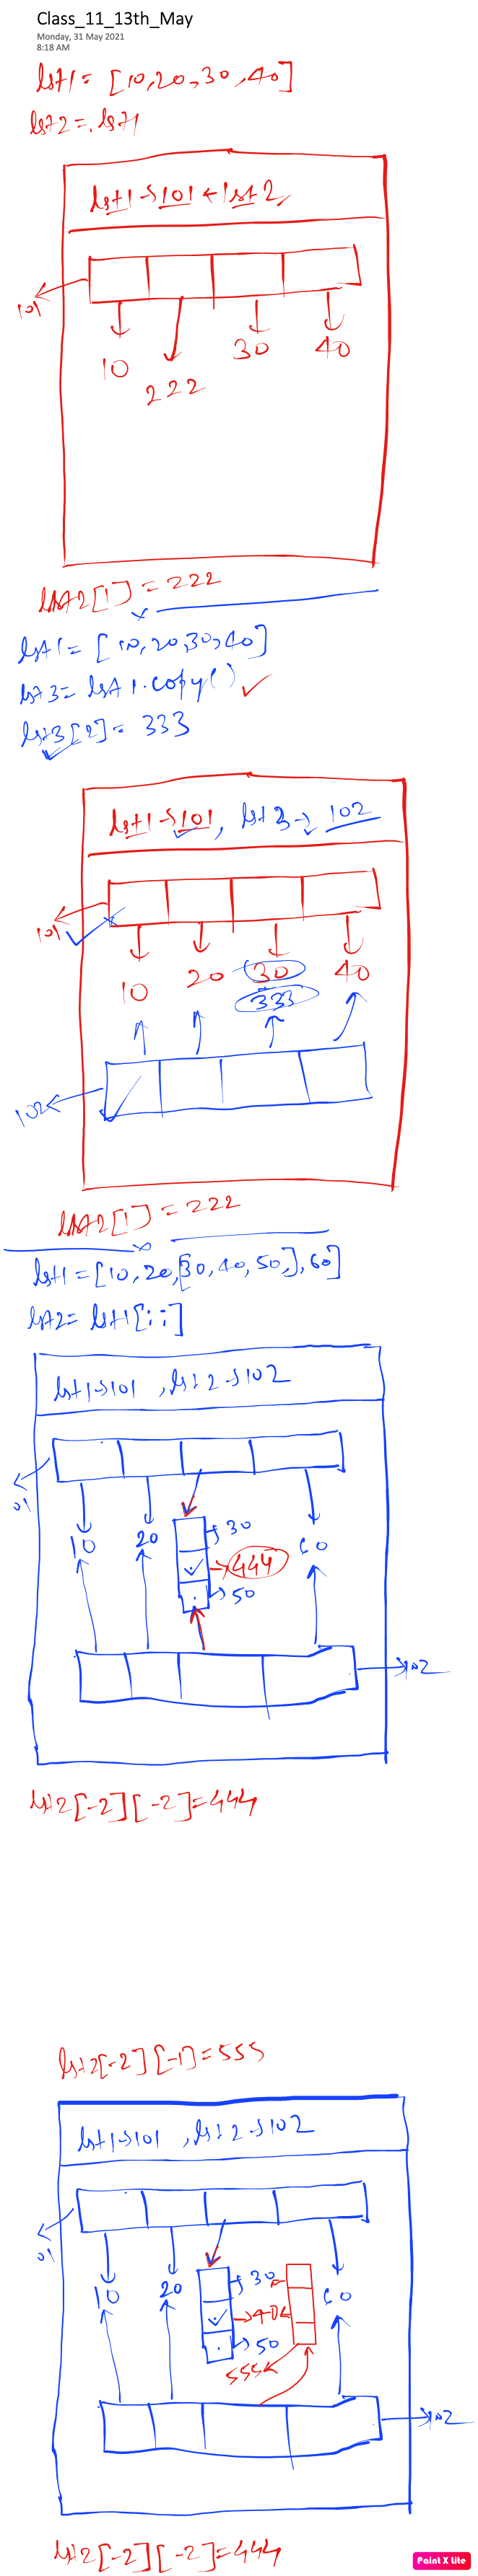 Class_11_13th_May
Monday, 31 May 2021
8:18 AM
lst1 = [10,20,30,40]
lst2 = lst1
lst1→101←lst2
101
10
222
30
40
lst2[1] = 222
lst1 = [10,20,30,40]
lst3 = lst1.copy()
lst3[2] = 333
lst1→101, lst3→102
101
10
20
30
40
333
102
lst2[1] = 222
lst1 = [10,20,[30,40,50,],60]
lst2 = lst1[::]
lst1→101, lst2→102
01
10
20
30
444
50
60
102
lst2[-2][-2]=444
lst2[-2][-1]=555
lst1→101, lst2→102
01
10
20
30
40
50
60
555
102
lst2[-2][-2]=444
Paint X Lite